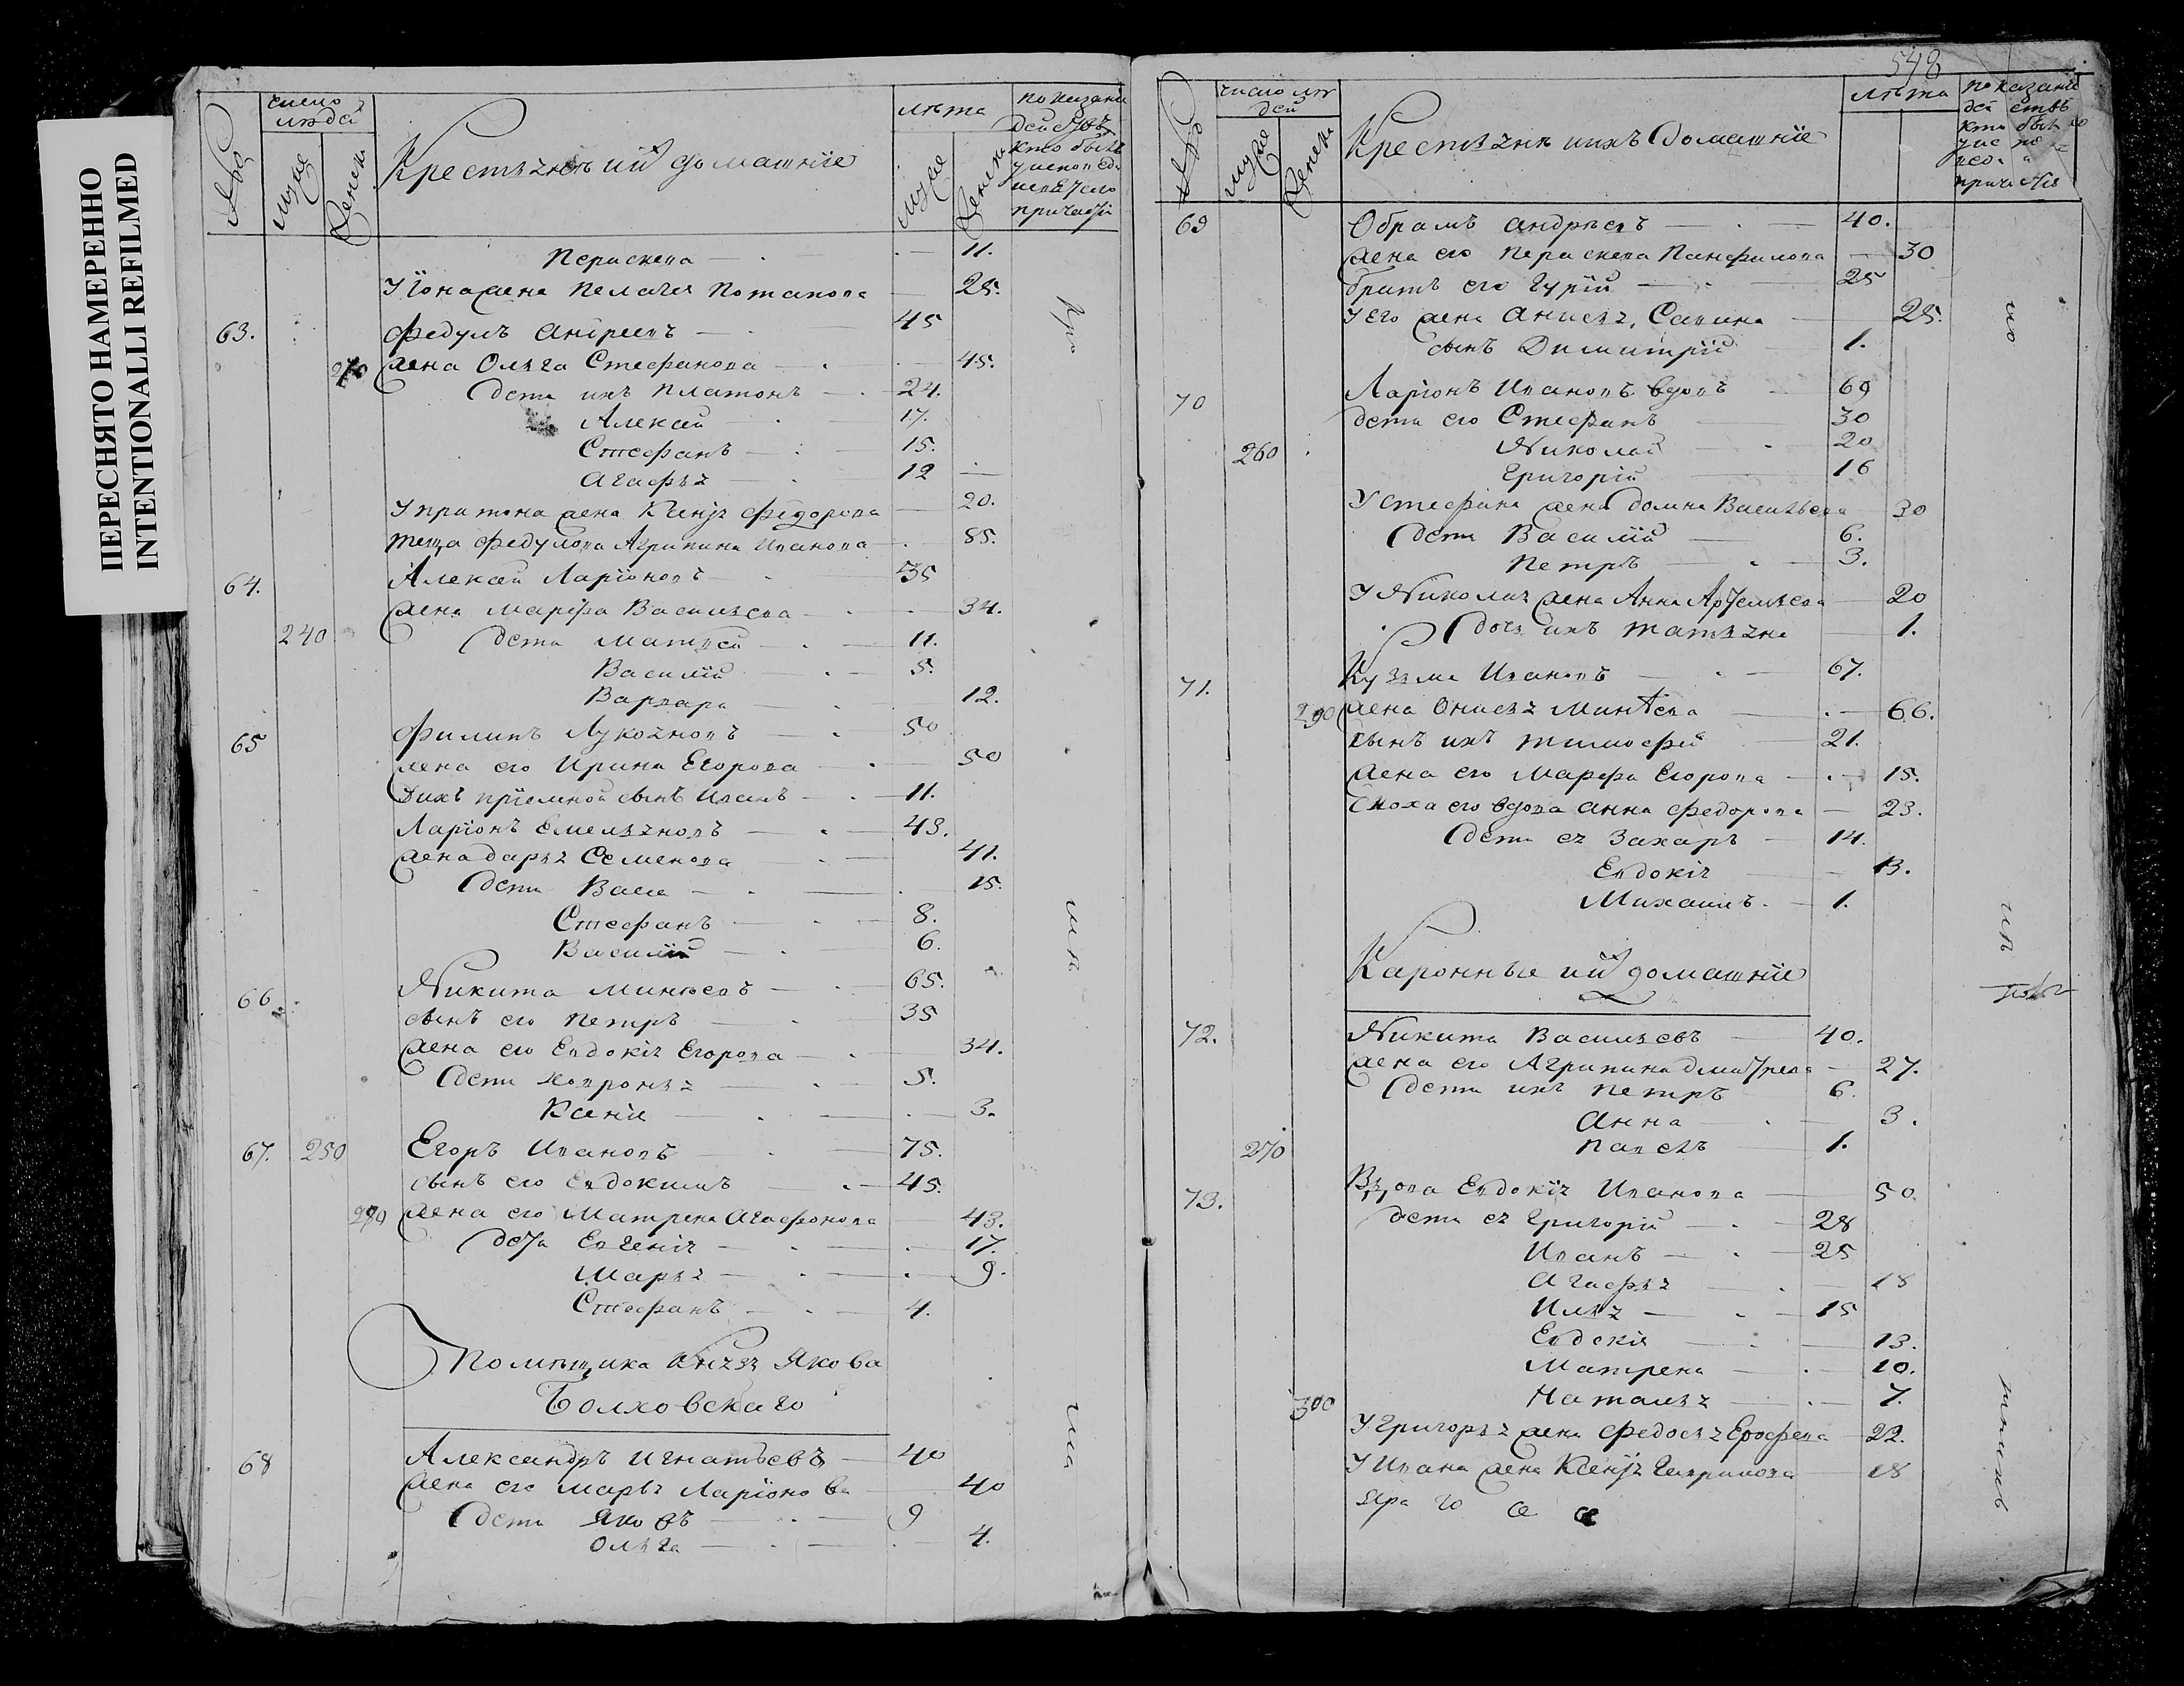 ПЕРЕСНЯТО НАМЕРЕННО
INTENTIONALLI REFILMED
число людей
лѣта
муже
женск
Крестьянѣ ихъ домашніе
муже
женска
показаніе
действъ
кто былъ
у исповеди
причастія
Перискева — 11.
У Іона жена Пелагея Потапова — 25.
63. Федулъ Андреевъ — 45
жена Ольга Стефанова — 45.
дети ихъ Платонъ — 24.
Алексей — 17.
Стефанъ — 15.
Агафья — 12
жена Ксенія Федорова — 20.
теща Федулова Агрипина Иванова — 85.
64. Алексей Ларіоновъ — 35
жена Марфа Васильева — 34.
240 дети Матвей — 11.
Василій — 5.
Варвара — 12.
65 Филипъ Лукояновъ — 50
жена его Ирина Егорова — 50
У ихъ пріемной сынъ Иванъ — 11.
Ларіонъ Емельяновъ — 43.
жена Дарья Семенова — 41.
дети Васа — 15.
Стефанъ — 8.
Василій — 6.
66 Никита Минеевъ — 65.
сынъ его Петръ — 35
жена его Евдокія Егорова — 34.
дети — 5.
Ксенія — 3.
67. 250 Егоръ Ивановъ — 75.
сынъ его Евдокимъ — 45.
жена его Матрена Агафонова — 43.
дети Евгенія — 17.
Марья — 9.
Стефанъ — 4.
Помѣщика Князя Якова
Болховскаго
68 Александръ Игнатьевъ — 40
жена его Марья Ларіонова — 40
дети Яковъ — 9
Ольга — 4.
548
число людей
лѣта
муже
женск
Крестьянѣ ихъ домашніе
показаніе
действъ
кто былъ
причастія
69 Обрамъ Андрѣевъ — 40.
жена его Перискева Панфилова — 30
братъ его Гурій — 25
У его жена Анисья Савина — 25.
сынъ Димитрій — 1.
70 Ларіонъ Ивановъ вдовъ — 69
дети его Стефанъ — 30
260 Николай — 20
Григорій — 16
У Стефана жена Домна Васильева — 30
дети Василій — 6.
Петръ — 3.
У Николая жена Анна Артемьева — 20
дочь ихъ Татьяна — 1.
71. Кузьма Ивановъ — 67.
290 жена Онисья Минѣева — 66.
сынъ ихъ Тимофей — 21.
жена его Марфа Егорова — 15.
Сноха его вдова Анна Федорова — 23.
дети ея Захаръ — 14.
Евдокія — 13.
Михаилъ — 1.
Каронные ихъ домашніе
72. Никита Васильевъ — 40.
жена его Агрипина Дмитрева — 27.
дети ихъ Петръ — 6.
Анна — 3.
270 Павелъ — 1.
73. Вдова Евдокія Иванова — 50.
дети ея Григорій — 28
Иванъ — 25
Агафья — 18
Илья — 15
Евдокія — 13.
Матрена — 10.
300 Наталья — 7.
У Григорья жена Федосья Ерофева — 22.
У Ивана жена Ксенія Гаврилова — 18